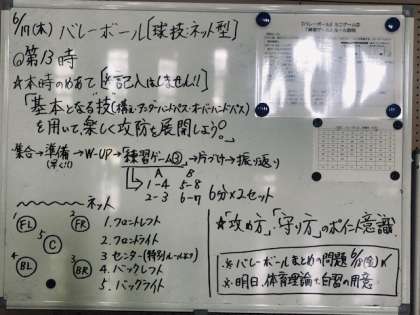 6/17(木) バレーボール[球技:ネット型]
@第13時
☆本時のめあて[※記入はしません!!]
「基本となる技(構え・アンダーハンドパス・オーバーハンドパス)
を用いて、楽しく攻防を展開しよう。」
集合→準備→W-UP→練習ゲーム③→片づけ→振り返り
(早く!!)
A B
1-4 5-8
2-3 6-7
6分×2セット
ネット
1 FL
2 FR
5 C
4 BL
3 BR
1. フロントレフト
2. フロントライト
3 センター(特別ルールより)
4. バックレフト
5. バックライト
☆「攻め方」・「守り方」のポイント意識
※バレーボールまとめの問題 6/18(金)〆
※明日、体育理論→自習の用意